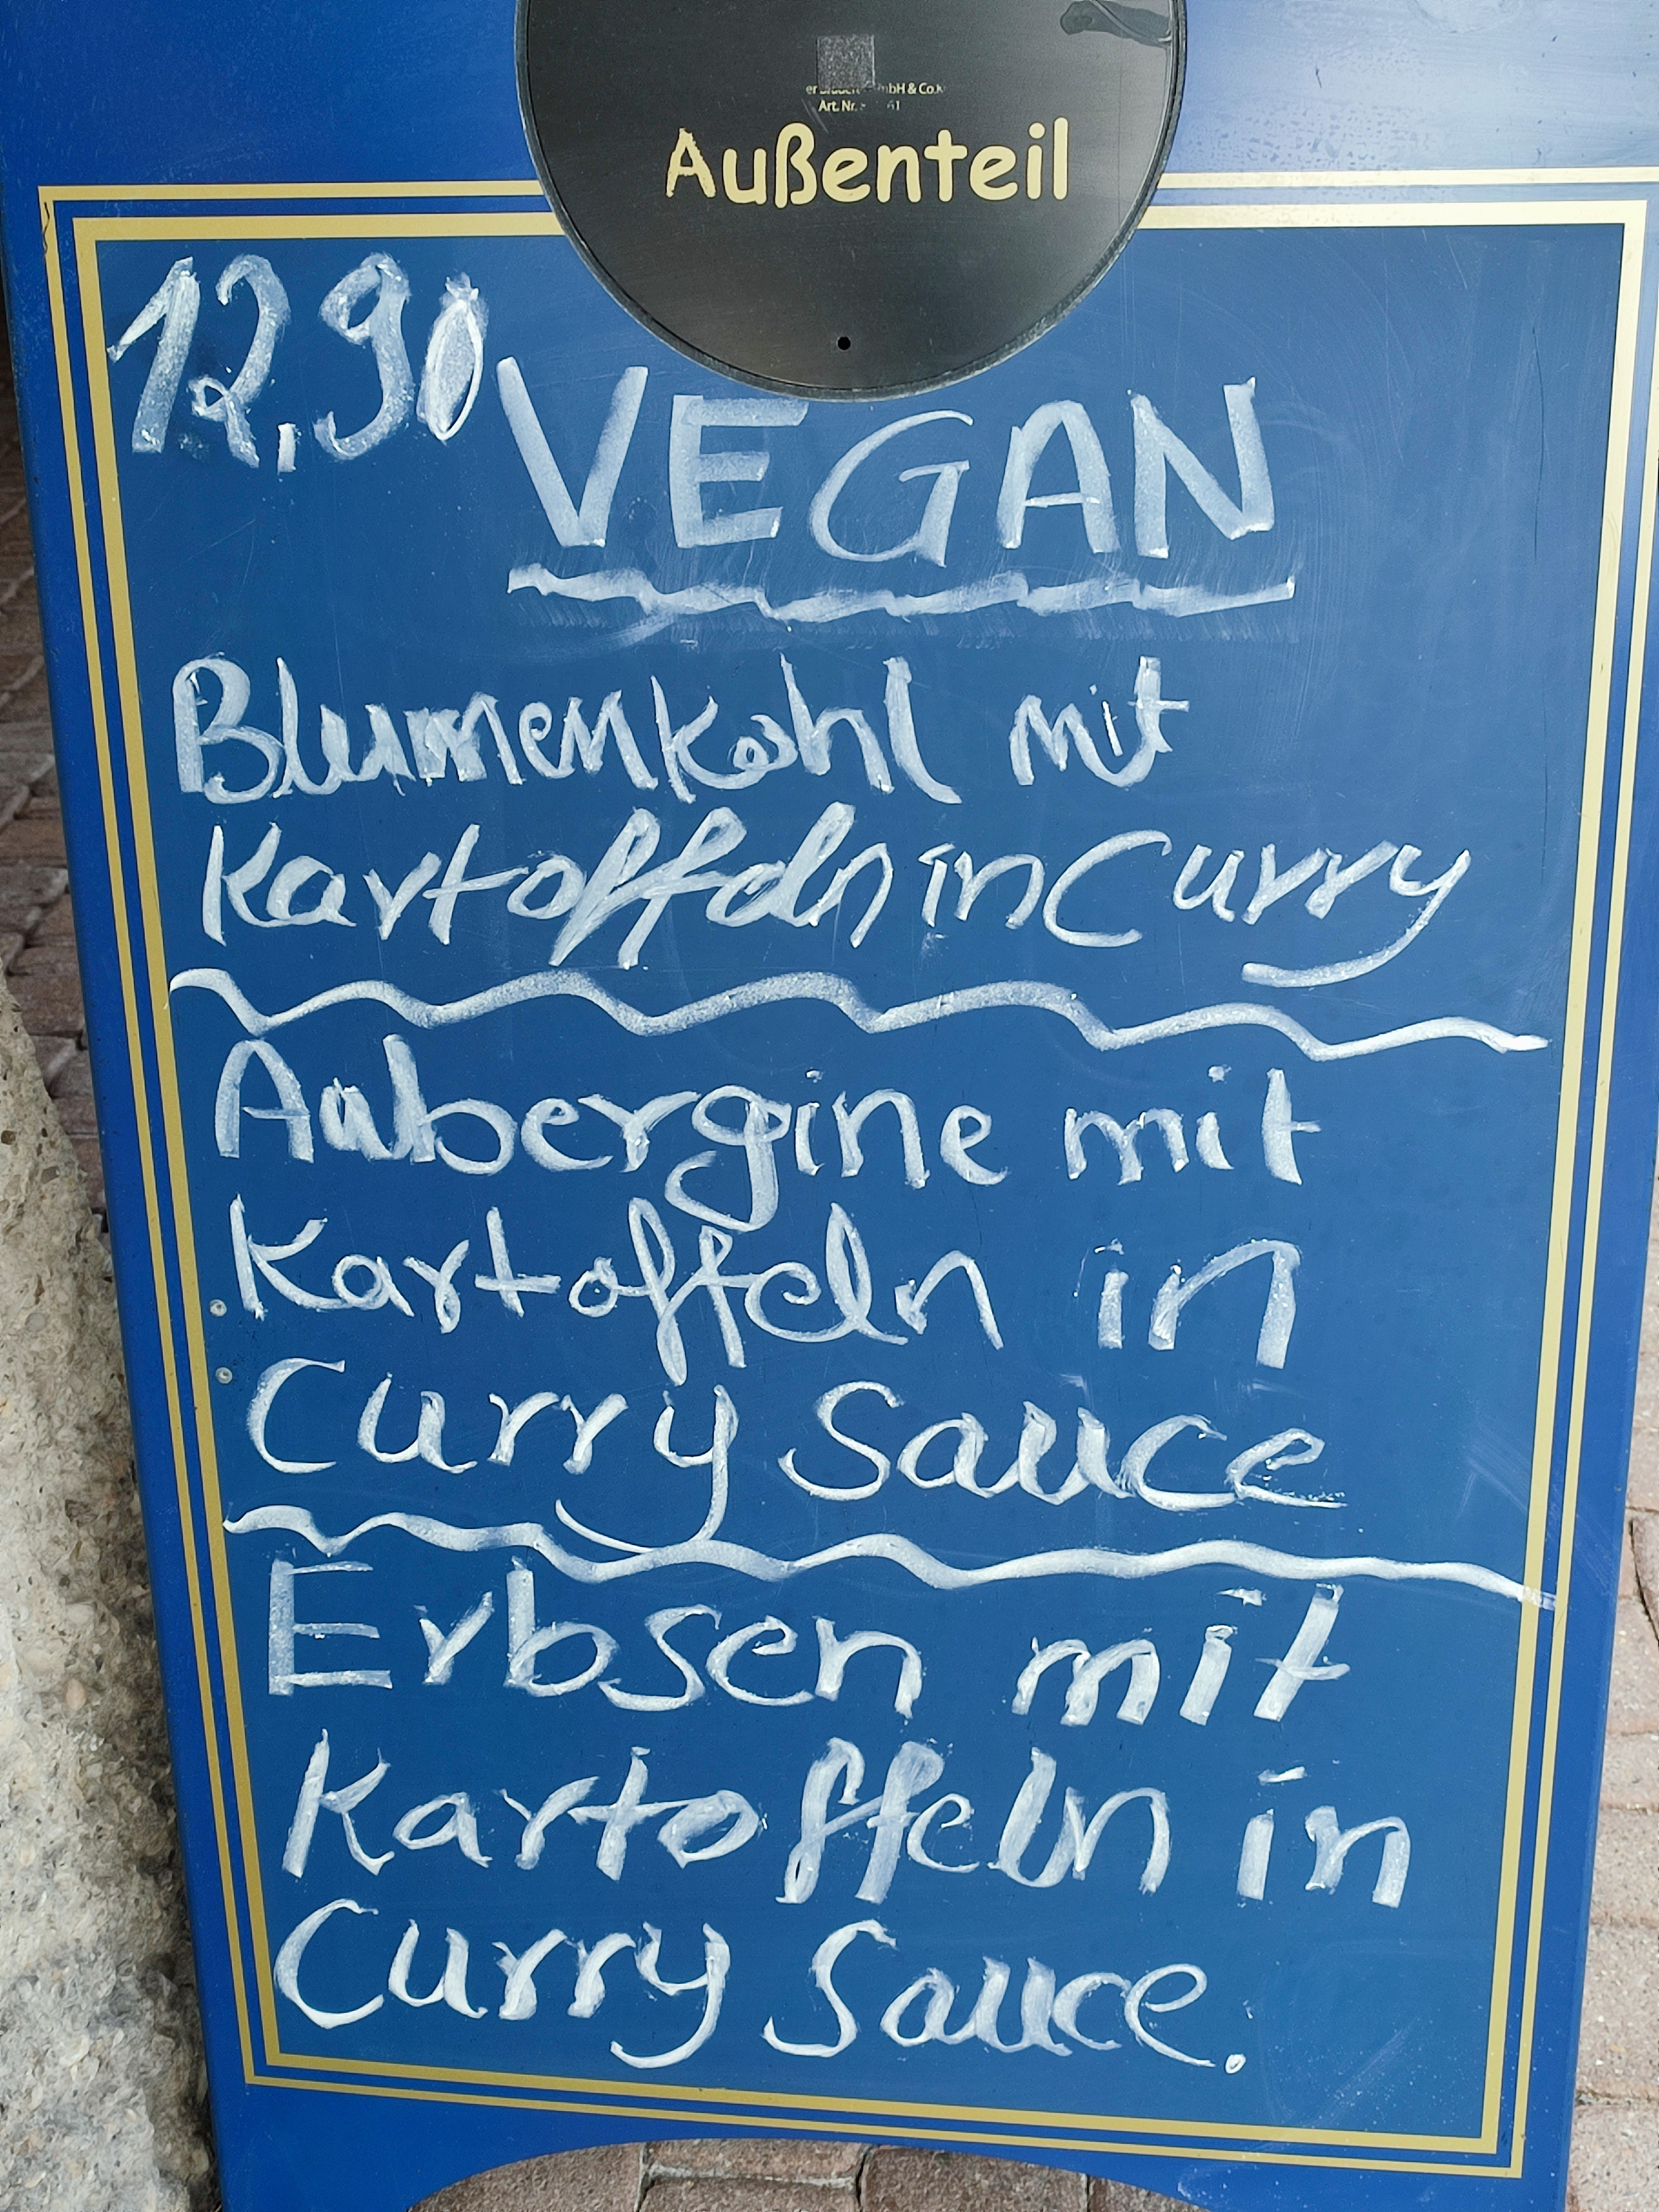 Art. Nr.
Außenteil
12,90
VEGAN
Blumenkohl mit
Kartoffeln in Curry
Aubergine mit
Kartoffeln in
Curry Sauce
Erbsen mit
Kartoffeln in
Curry Sauce.